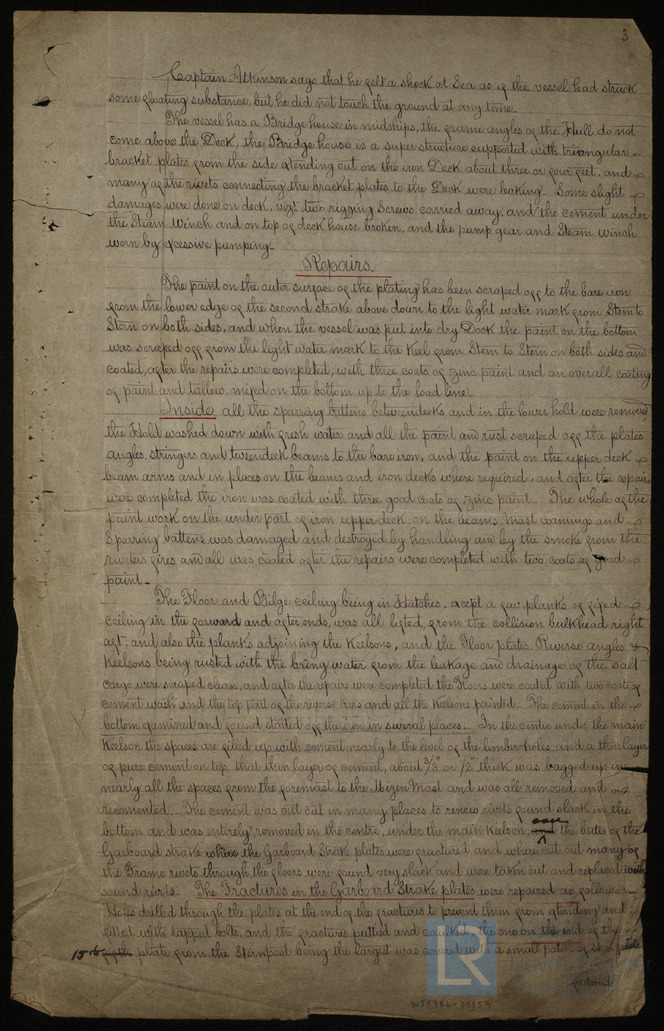 3
Captain Atkinson says that he felt a shock at Sea as if the vessel had struck
some floating substance, but he did not touch the ground at any time.
The vessel has a Bridge house in midships, the frame angles of the Hull do not
come above the Deck, the Bridge house is a super structure supported with triangular
bracket plates from the side extending out on the iron Deck about three or four feet, and
many of the rivets connecting the bracket plates to the Deck were leaking. Some slight
damages were done on deck, vizt two rigging Screws carried away, and the cement under
the Steam Winch and on top of deck house broken, and the pump gear and Steam Winch
worn by excessive pumping.
Repairs.
The paint on the outer surface of the plating has been scraped off to the bare iron
from the lower edge of the second strake above down to the light water mark from Stem to
Stern on both sides, and when the vessel was put into dry Dock the paint on the bottom
was scraped off from the light water mark to the Keel from Stem to Stern on both sides and
coated, after the repairs were completed, with three coats of zinc paint and an overall coating
of paint and tallow, mixed on the bottom up to the load line.
Inside, all the sparring battens betweendecks and in the lower hold were removed
the Hold washed down with fresh water and all the paint and rust scraped off the plates
angles, stringers and tweendeck beams to the bare iron, and the paint on the upper deck
beam arms and in places on the beams and iron decks where required, and after the repairs
were completed the iron was coated with three good coats of zinc paint. The whole of the
paint work on the under part of iron upper deck, on the beams, mast coamings and
Sparring battens was damaged and destroyed by handling and by the smoke from the
rivden fires and all was coated after the repairs were completed with two coats of good
paint.
The Floor and Bilge ceiling being in Hatches, except a few planks of fixed
ceiling in the forward and after ends, was all lifted, from the collision bulkhead right
aft, and also the planks adjoining the Keelsons, and the Floor plates. Reverse angles &
Keelsons being rusted with the briny water from the leakage and drainage of the salt
cargo were scraped clean, and after the repairs were completed the Floors were coated with two coats of
cement wash and the top part of the reverse bars and all the Keelsons painted. The cement in the
bottom examined and found started off the iron in several places. In the centre under the main
Keelson the spaces are filled up with cement nearly to the level of the limber holes, and a thin layer
of pure cement on top, that thin layer of cement, about 3/8" or 1/2" thick was bagged up in
nearly all the spaces from the foremast to the Mizen Mast and was all removed and
recemented. The cement was cut out in many places to renew rivets found slack in the
bottom and was entirely removed in the centre, under the main Keelson, and over the butts of the
Garboard strake where the Garboard Strake plates were fractured and where cut out many of
the Frame rivets through the floors were found very slack and were taken out and replaced with
sound rivets. The Fractures in the Garboard Strake plates were repaired as follows
Holes drilled through the plates at the end of the fractures to prevent them from extending and
filled with tapped bolts, and the fractures puttied and caulked, the one on the end of the
15th plate from the Sternpost being the largest was covered with a small patch
LR